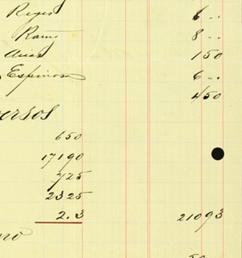 Reyes 6 --
Ramo 8 --
Arias 150
Espinosa 6 --
450
ersos
650
17190
725
2325
2.3 21093